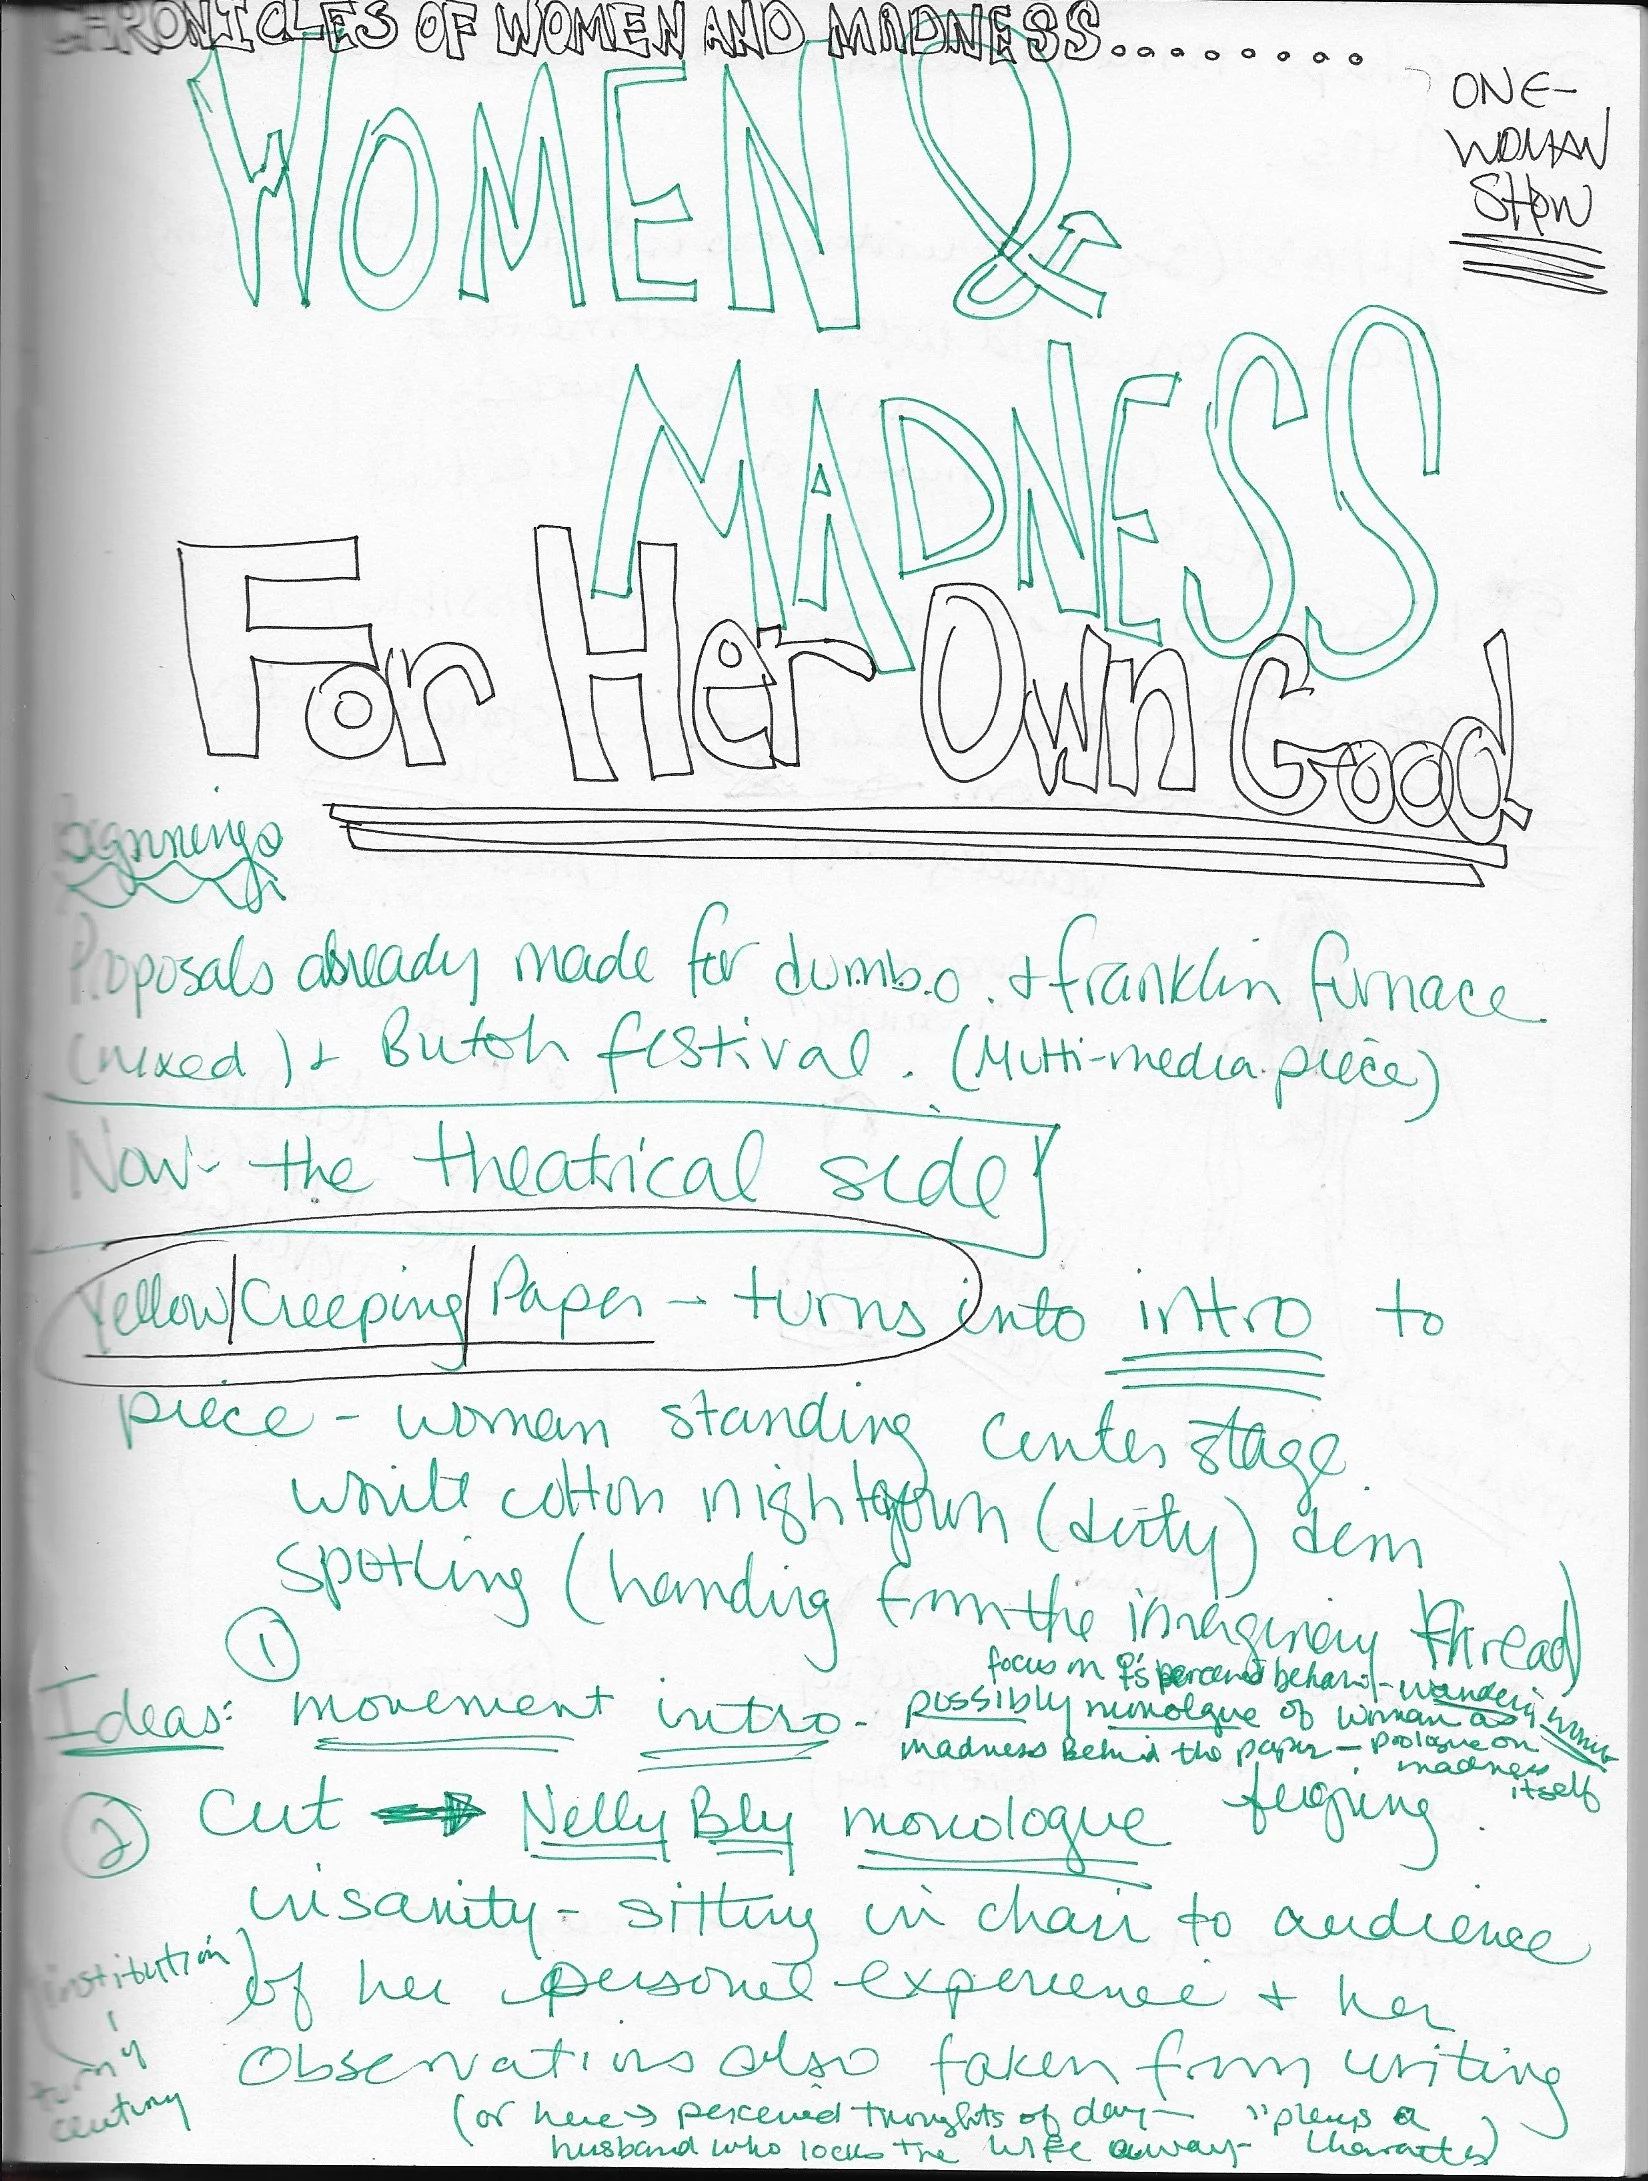 CHRONICLES OF WOMEN AND MADNESS........
ONE-
WOMAN
SHOW
WOMEN &
MADNESS
For Her Own Good
Beginnings
Proposals already made for d.u.m.b.o. + franklin furnace
(mixed) + Butoh festival. (Multi-media piece)
Now - the theatrical side
Yellow/Creeping/Paper - turns into intro to
piece - woman standing center stage
white cotton nightgown (dirty) dim
spotling (handing from the imaginary thread)
①
Ideas: movement intro -
focus on perceived behavior -
possibly monologue of woman as
madness behind the paper - prologue on
madness
itself
② Cut → Nelly Bly monologue feigning
insanity - sitting in chair to audience
of her personal experience + her
observations also taken from writing
(or here → perceived thoughts of day - "plays a
husband who locks the wife away - character)
institution
turn
century